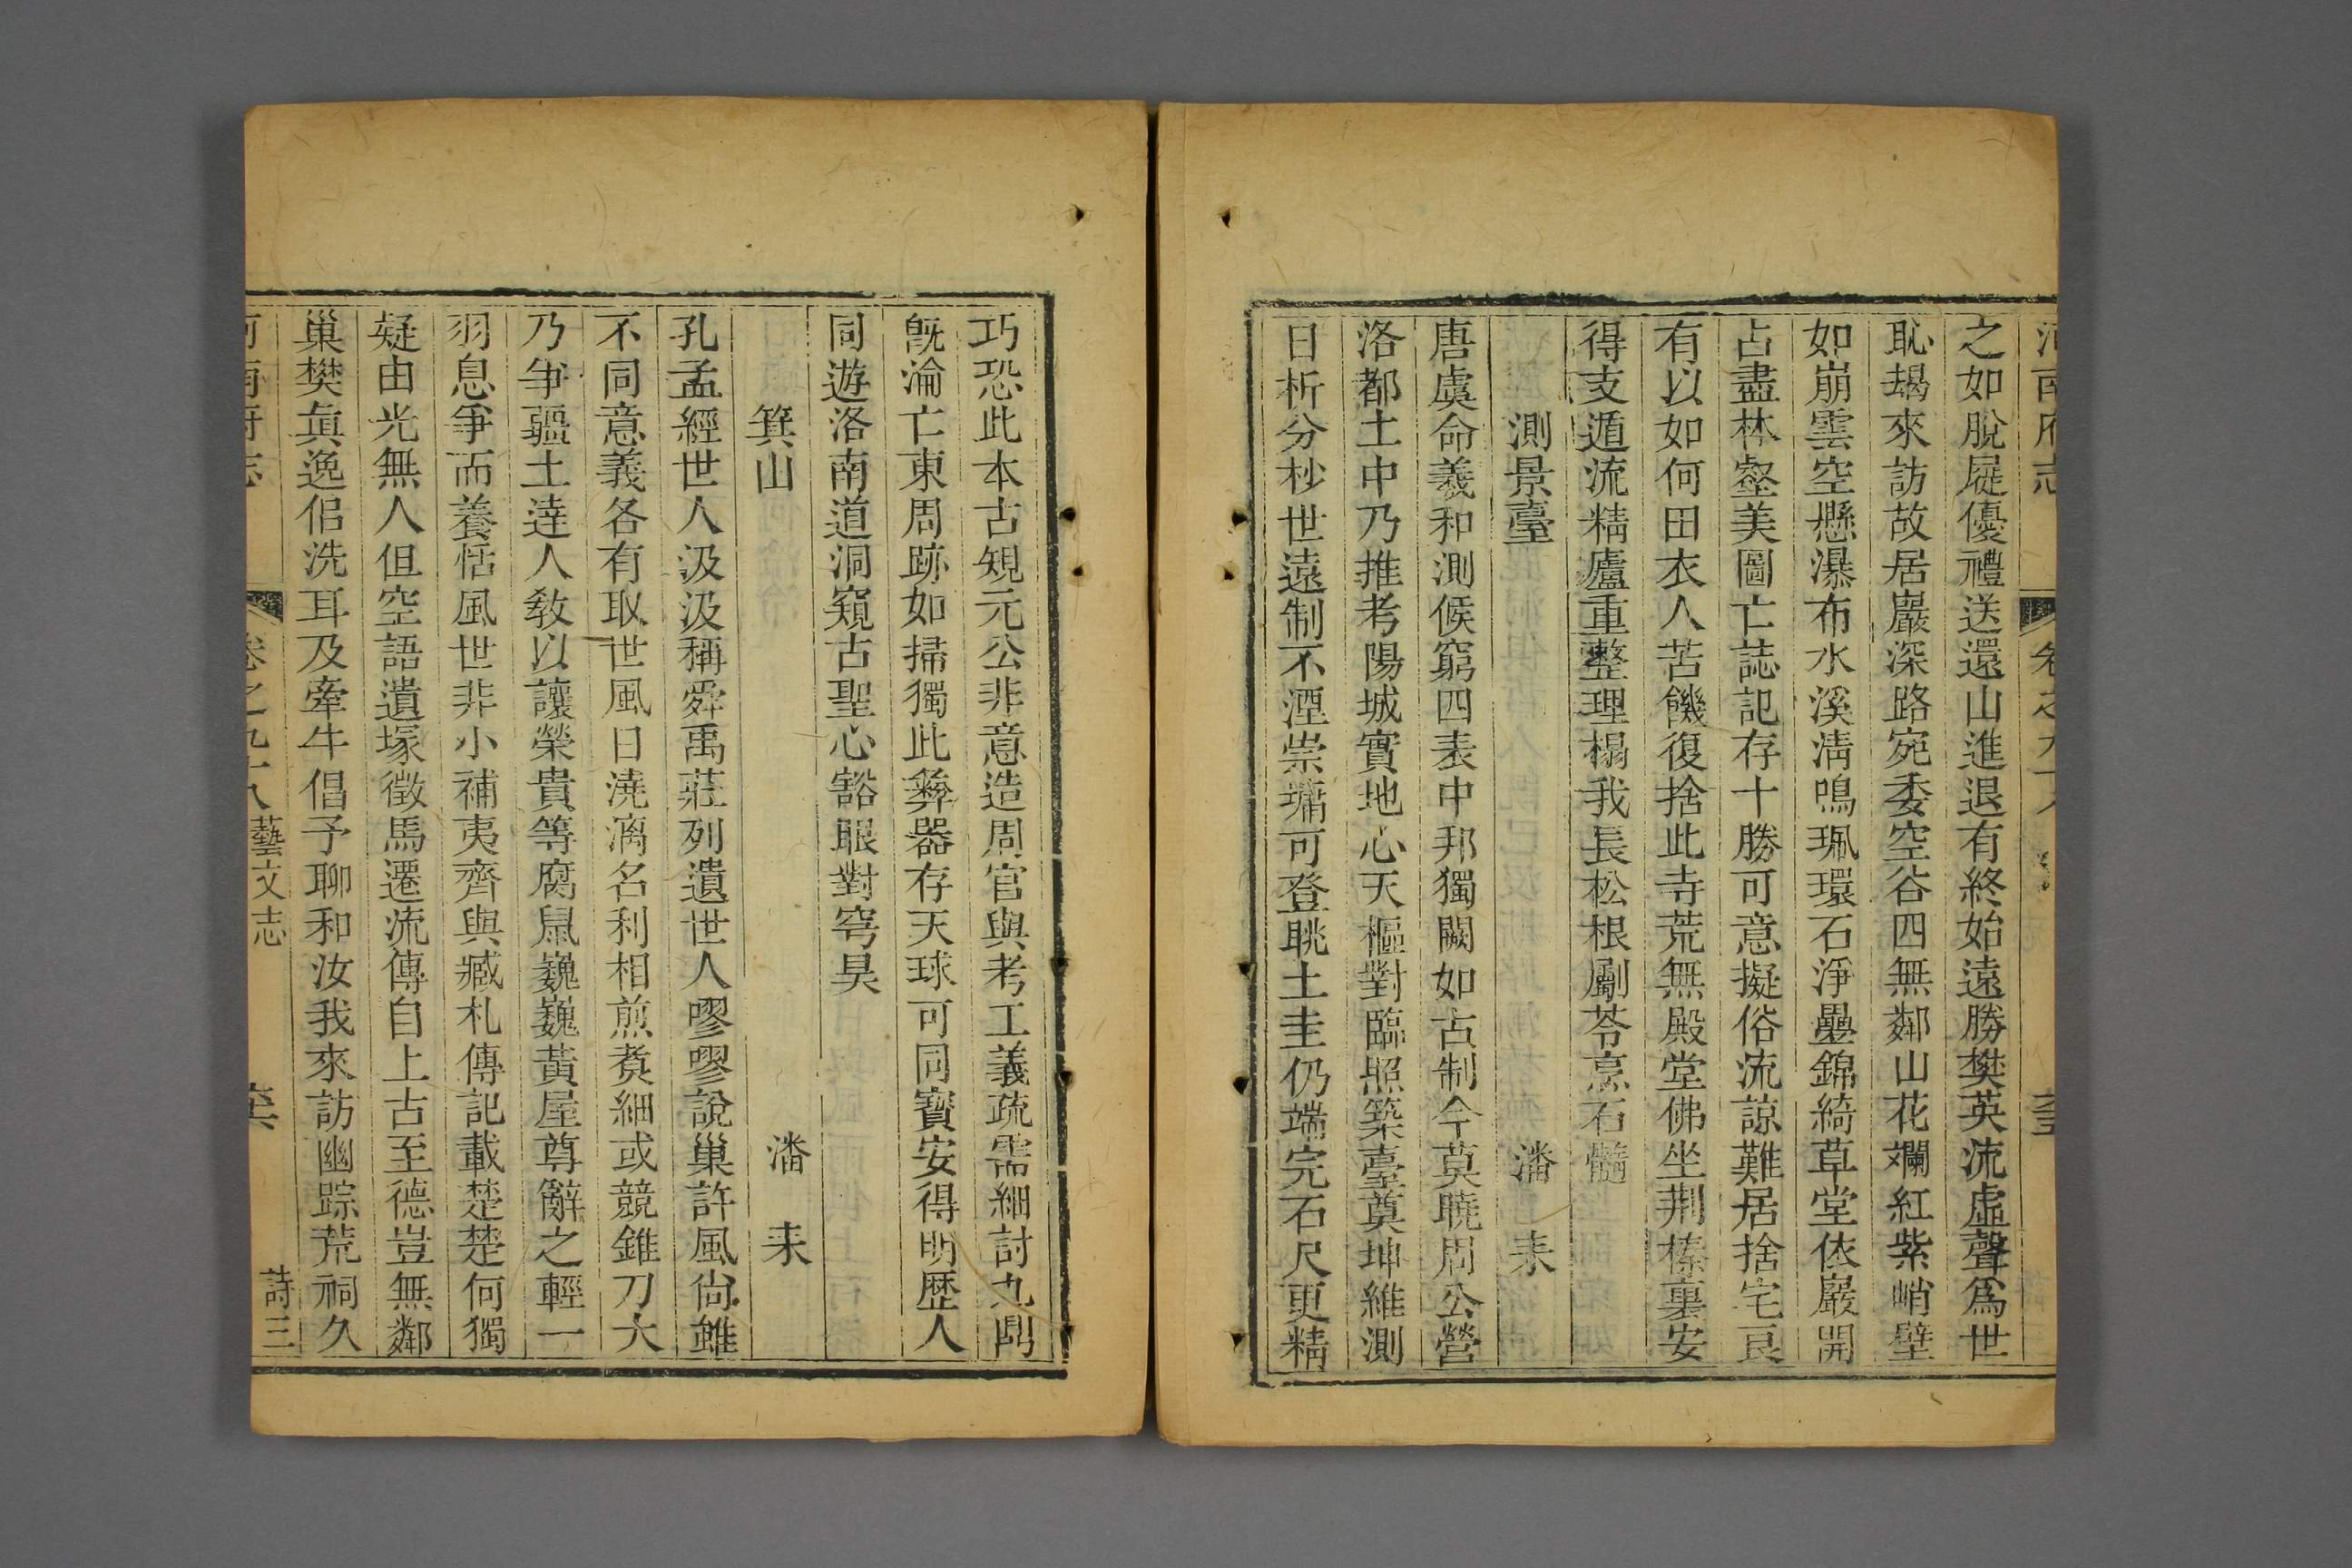 河南府志 卷之九十八
之如脫屣優禮送還山進退有終始遠勝樊英流虛聲爲世
恥朅來訪故居巖深路宛委空谷四無鄰山花斕紅紫峭壁
如崩雲空懸瀑布水溪淸鳴珮環石淨壘錦綺草堂依巖開
占盡林壑美圖亡誌記存十勝可意擬俗流諒難居捨宅良
有以如何田衣人苦饑復捨此寺荒無殿堂佛坐荆榛裏安
得支遁流精廬重整理榻我長松根斸苓烹石髓
測景臺 潘耒
唐虞命羲和測候窮四表中邦獨闕如古制今莫曉周公營
洛都土中乃推考陽城實地心天樞對臨照築臺奠坤維測
日析分杪世遠制不湮崇墉可登眺土圭仍端完石尺更精
巧恐此本古䂓元公非意造周官與考工義疏需細討九鼎
旣淪亡東周跡如掃獨此彝器存天球可同寶安得明歷人
同遊洛南道洞窺古聖心豁眼對穹昊
箕山 潘耒
孔孟經世人汲汲稱舜禹莊列遺世人嘐嘐說巢許風尙雖
不同意義各有取世風日澆漓名利相煎煑細或競錐刀大
乃爭疆土達人敎以讓榮貴等腐鼠巍巍黃屋尊辭之輕一
羽息爭而養恬風世非小補夷齊與臧札傳記載楚楚何獨
疑由光無人但空語遺塚徵馬遷流傳自上古至德豈無鄰
巢樊眞逸侶洗耳及牽牛倡予聊和汝我來訪幽踪荒祠久
河南府志 卷之九十八藝文志 詩三